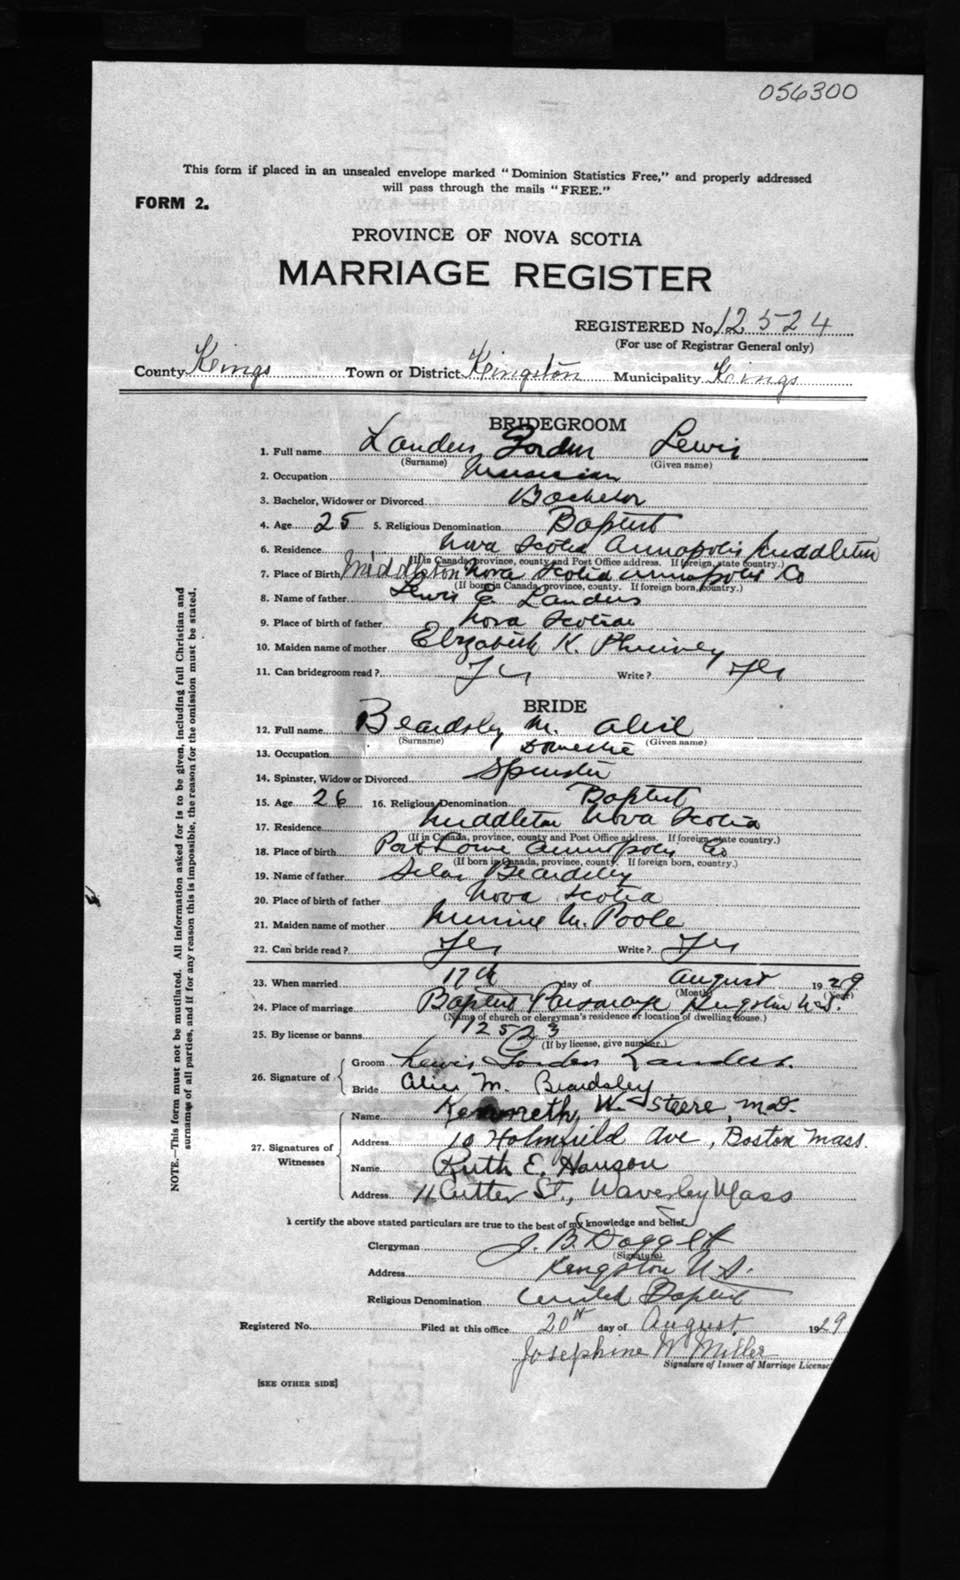 056300
This form if placed in an unsealed envelope marked "Dominion Statistics Free," and properly addressed
will pass through the mails "FREE."
FORM 2.
PROVINCE OF NOVA SCOTIA
MARRIAGE REGISTER
REGISTERED No. 12524
(For use of Registrar General only)
County Kings Town or District Kingston Municipality Kings
BRIDEGROOM
1. Full name Landers Gordon Lewis
(Surname) (Given name)
2. Occupation
3. Bachelor, Widower or Divorced Bachelor
4. Age 25 5. Religious Denomination Baptist
6. Residence Nova Scotia Annapolis Middleton
(If in Canada, province, county and Post Office address. If foreign, state country.)
7. Place of Birth Middleton Nova Scotia Annapolis Co
(If born in Canada, province, county. If foreign born, country.)
8. Name of father Lewis E Landers
9. Place of birth of father Nova Scotia
10. Maiden name of mother Elizabeth K. Phinney
11. Can bridegroom read? Yes Write? Yes
BRIDE
12. Full name Beardsley M. Alice
(Surname) (Given name)
13. Occupation Domestic
14. Spinster, Widow or Divorced Spinster
15. Age 26 16. Religious Denomination Baptist
17. Residence Middleton Nova Scotia
(If in Canada, province, county and Post Office address. If foreign, state country.)
18. Place of birth Port Lorne Annapolis Co
(If born in Canada, province, county. If foreign born, country.)
19. Name of father Silas Beardsley
20. Place of birth of father Nova Scotia
21. Maiden name of mother Minnie M. Poole
22. Can bride read? Yes Write? Yes
23. When married 17th day of August 1929
(Month) (Year)
24. Place of marriage Baptist Parsonage Kingston N.S.
(Name of church or clergyman's residence or location of dwelling house.)
25. By license or banns 12523
(If by license, give number.)
26. Signature of Groom Lewis Gorden Landers.
Bride Alice M. Beardsley
27. Signatures of Witnesses Name Kenneth W. Steere, M.D.
Address 10 Holmfield Ave, Boston Mass.
Name Ruth E. Hanson
Address 11 Cutter St., Waverley Mass
I certify the above stated particulars are true to the best of my knowledge and belief.
Clergyman J. B. Doggett
(Signature)
Address Kingston N.S.
Religious Denomination United Baptist
Registered No. Filed at this office 20th day of August 1929
Josephine W Miller
Signature of Issuer of Marriage License
[SEE OTHER SIDE]
NOTE.—This form must not be mutilated. All information asked for is to be given, including full Christian and
surnames of all parties, and if for any reason this is impossible, the reason for the omission must be stated.